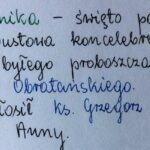 nika – święto pa
ustową koncelebr
byłego proboszcza
Obratańskiego.
łosił ks. Grzegorz
Anny.